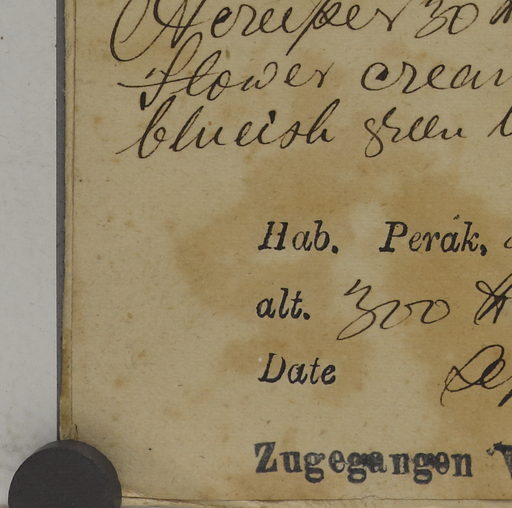 Creeper 30 ft
flower cream
blueish green
Hab. Perak,
alt. 300 ft
Date Sep
Zugegangen